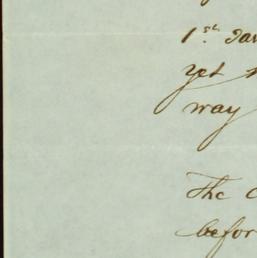 1st. Jan
yet
way
The
befor